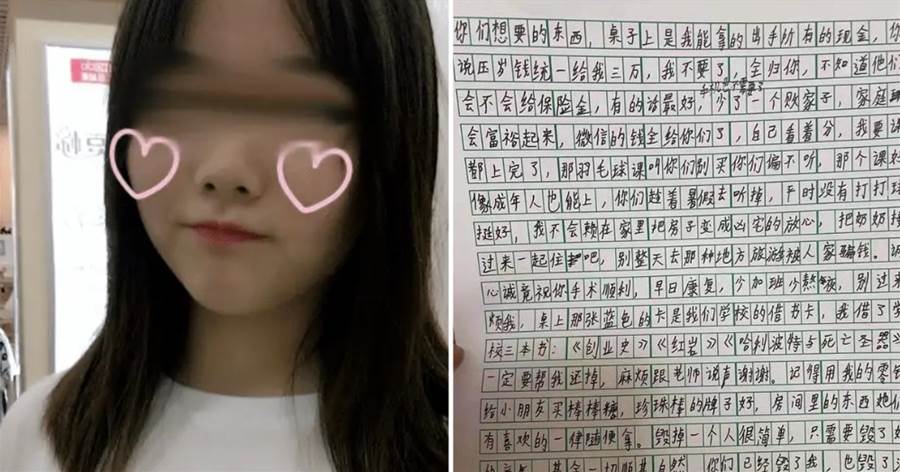 你们想要的东西，桌子上是我能拿的出手所有的现金，你
说压岁钱统一给我三万，我不要了，全归你，不知道他们
会不会给保险金，有的话最好，少了一个败家子，家庭
会富裕起来，微信的钱全给你们了，自己看着分，我要
都上完了，那羽毛球课叫你们别买你们偏不听，那个课好
像成年人也能上，你们趁着暑假去听掉，平时没有打打球
挺好，我不会赖在家里把房子变成凶宅的放心，把奶奶接
过来一起住吧，别整天去那种地方旅游被人家骗钱。诚
心诚意祝你手术顺利，早日康复，少加班少熬夜，别过来
烦我，桌上那张蓝色的卡是我们学校的借书卡，我借了学
校三本书：《创业史》《红岩》《哈利波特与死亡圣器》
一定要帮我还掉，麻烦跟老师说声谢谢。记得用我的零钱
给小朋友买棒棒糖，珍珠棒的牌子好，房间里的东西她们
有喜欢的一律随便拿。毁掉一个人很简单，只需要毁了